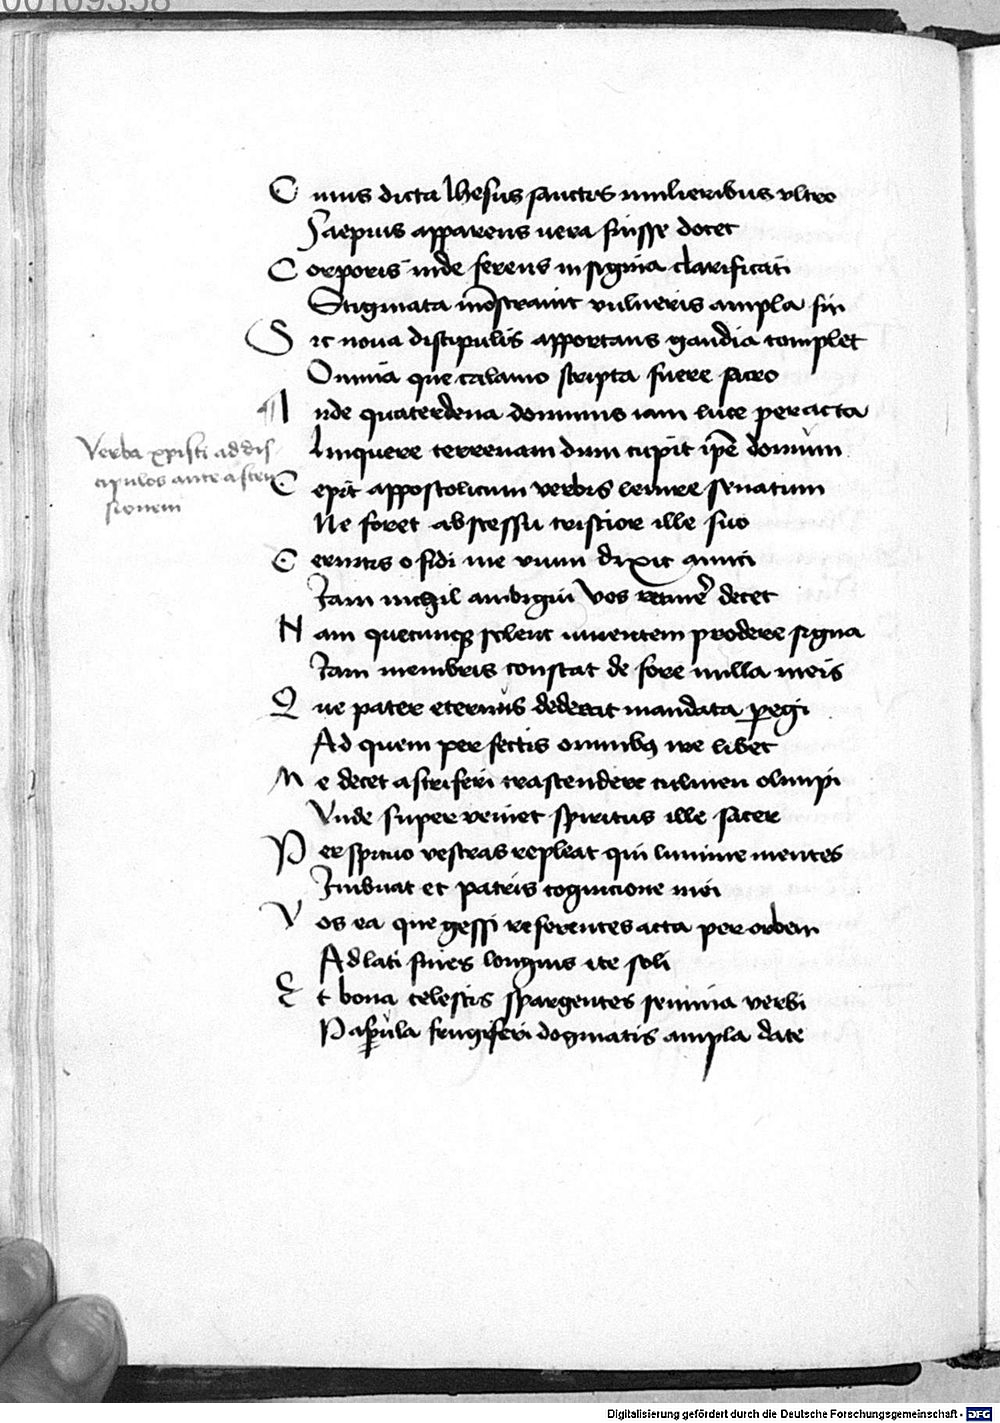 00109358
Cuius dicta Ihesus sanctis mulieribus vltro
Saepius apparens uera fuisse docet
Corporis inde ferens insignia clarificati
Stigmata mōstrauit vulneris ampla sui
Sic noua discipulis apportans gaudia complet
Omnia que calamo scripta fuere sacro
¶ Inde quaterdena dominus iam luce peracta
Linquere terrenam dum cupit ip̄e domum
Verba xpisti ad dis
cipulos ante ascen
sionem
Cepit appostolicum verbis lenire senatum
Ne foret abscessu tristior ille suo
Cernitis o fidi me viuum dixit amici
Iam nichil ambigui vos retinē decet
Nam quecunqꝫ solent iuuentem prodere signa
Iam membris constat de fore nulla meis
Que pater eternus dederat mandata ꝑegi
Ad quem perfectis omnibꝫ ire libet
Me decet astriferi trascendere culmen olimpi
Vnde super veniet spiritus ille sacer
Perspicuo vestras repleat qui lumine mentes
Imbuat et patris cognicione mei
Vos ea que gessi referentes acta per orbem
Ad lati fines longius ite soli
Et bona celestis spargentes semina verbi
Pascula frugiferi dogmatis ampla date
Digitalisierung gefördert durch die Deutsche Forschungsgemeinschaft - DFG